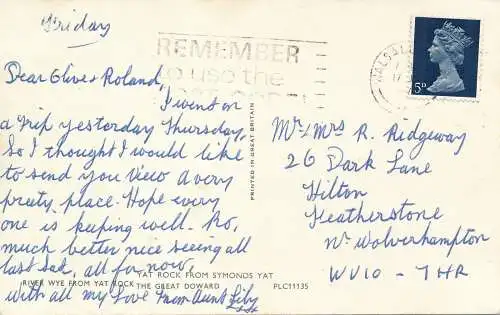 Friday
REMEMBER
to use the
Dear Olive & Roland,
I went on
a trip yesterday Thursday,
So I thought I would like
to send you View a very
pretty place. Hope every
one is keeping well. Ro,
much better nice seeing all
last Sat, all for now,
with all my Love From Aunt Lily
YAT ROCK FROM SYMONDS YAT
RIVER WYE FROM YAT ROCK THE GREAT DOWARD PLC11135
PRINTED IN GREAT BRITAIN
5D
Mr & Mrs R. Ridgeway
26 Dark Lane
Hilton
Featherstone
Nr Wolverhampton
WV10 - 7HR